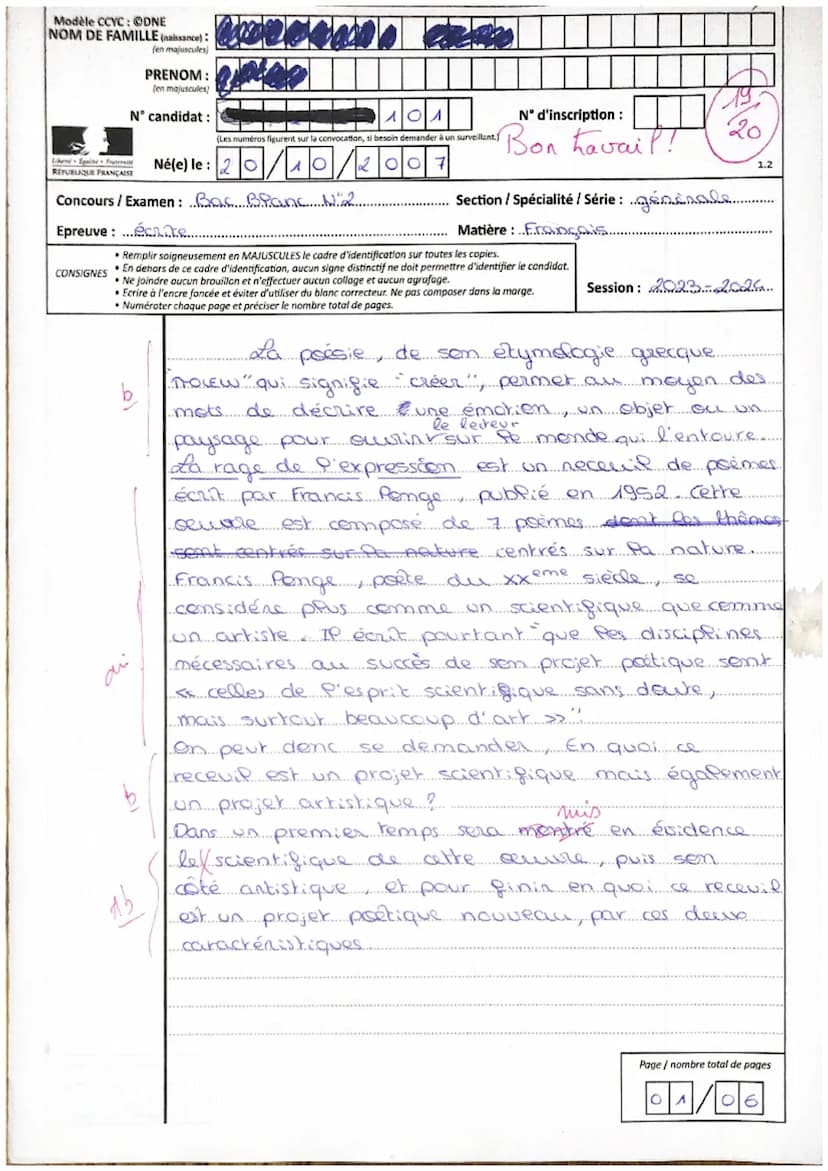 Modèle CCYC : ©DNE
NOM DE FAMILLE (naissance) :
(en majuscules)
PRENOM :
(en majuscules)
N° candidat : 101 N° d'inscription :
19/20
(Les numéros figurent sur la convocation, si besoin demander à un surveillant.)
Bon travail !
Liberté • Égalité • Fraternité
RÉPUBLIQUE FRANÇAISE
Né(e) le : 20/10/2007
1.2
Concours / Examen : Bac Blanc N°2 Section / Spécialité / Série : générale
Epreuve : écrite Matière : Français
CONSIGNES
• Remplir soigneusement en MAJUSCULES le cadre d'identification sur toutes les copies.
• En dehors de ce cadre d'identification, aucun signe distinctif ne doit permettre d'identifier le candidat.
• Ne joindre aucun brouillon et n'effectuer aucun collage et aucun agrafage.
• Ecrire à l'encre foncée et éviter d'utiliser du blanc correcteur. Ne pas composer dans la marge.
• Numéroter chaque page et préciser le nombre total de pages.
Session : 2023-2024
La poésie, de son etymologie grecque
qui signifie "créer", permet au moyen des
b
mots de décrire une émotion, un objet ou un
le lecteur
paysage pour ouvrir sur le monde qui l'entoure.
La rage de l'expression est un receuil de poèmes
écrit par Francis Ponge, publié en 1952. Cette
oeuvre est composé de 7 poèmes dont les thèmes
sont centrés sur la nature centrés sur la nature.
Francis Ponge, poète du XXème siècle, se
considére plus comme un scientifique que comme
un artiste. Il écrit pourtant "que les disciplines
nécessaires au succès de son projet poétique sont
« celles de l'esprit scientifique sans doute,
mais surtout beaucoup d'art »".
On peut donc se demander, En quoi ce
receuil est un projet scientifique mais également
b
un projet artistique ?
mis
Dans un premier temps sera montré en évidence
le scientifique de cette oeuvre, puis son
côté artistique, et pour finir en quoi ce receuil
est un projet poétique nouveau, par ces deux
caractéristiques.
Page / nombre total de pages
01/06